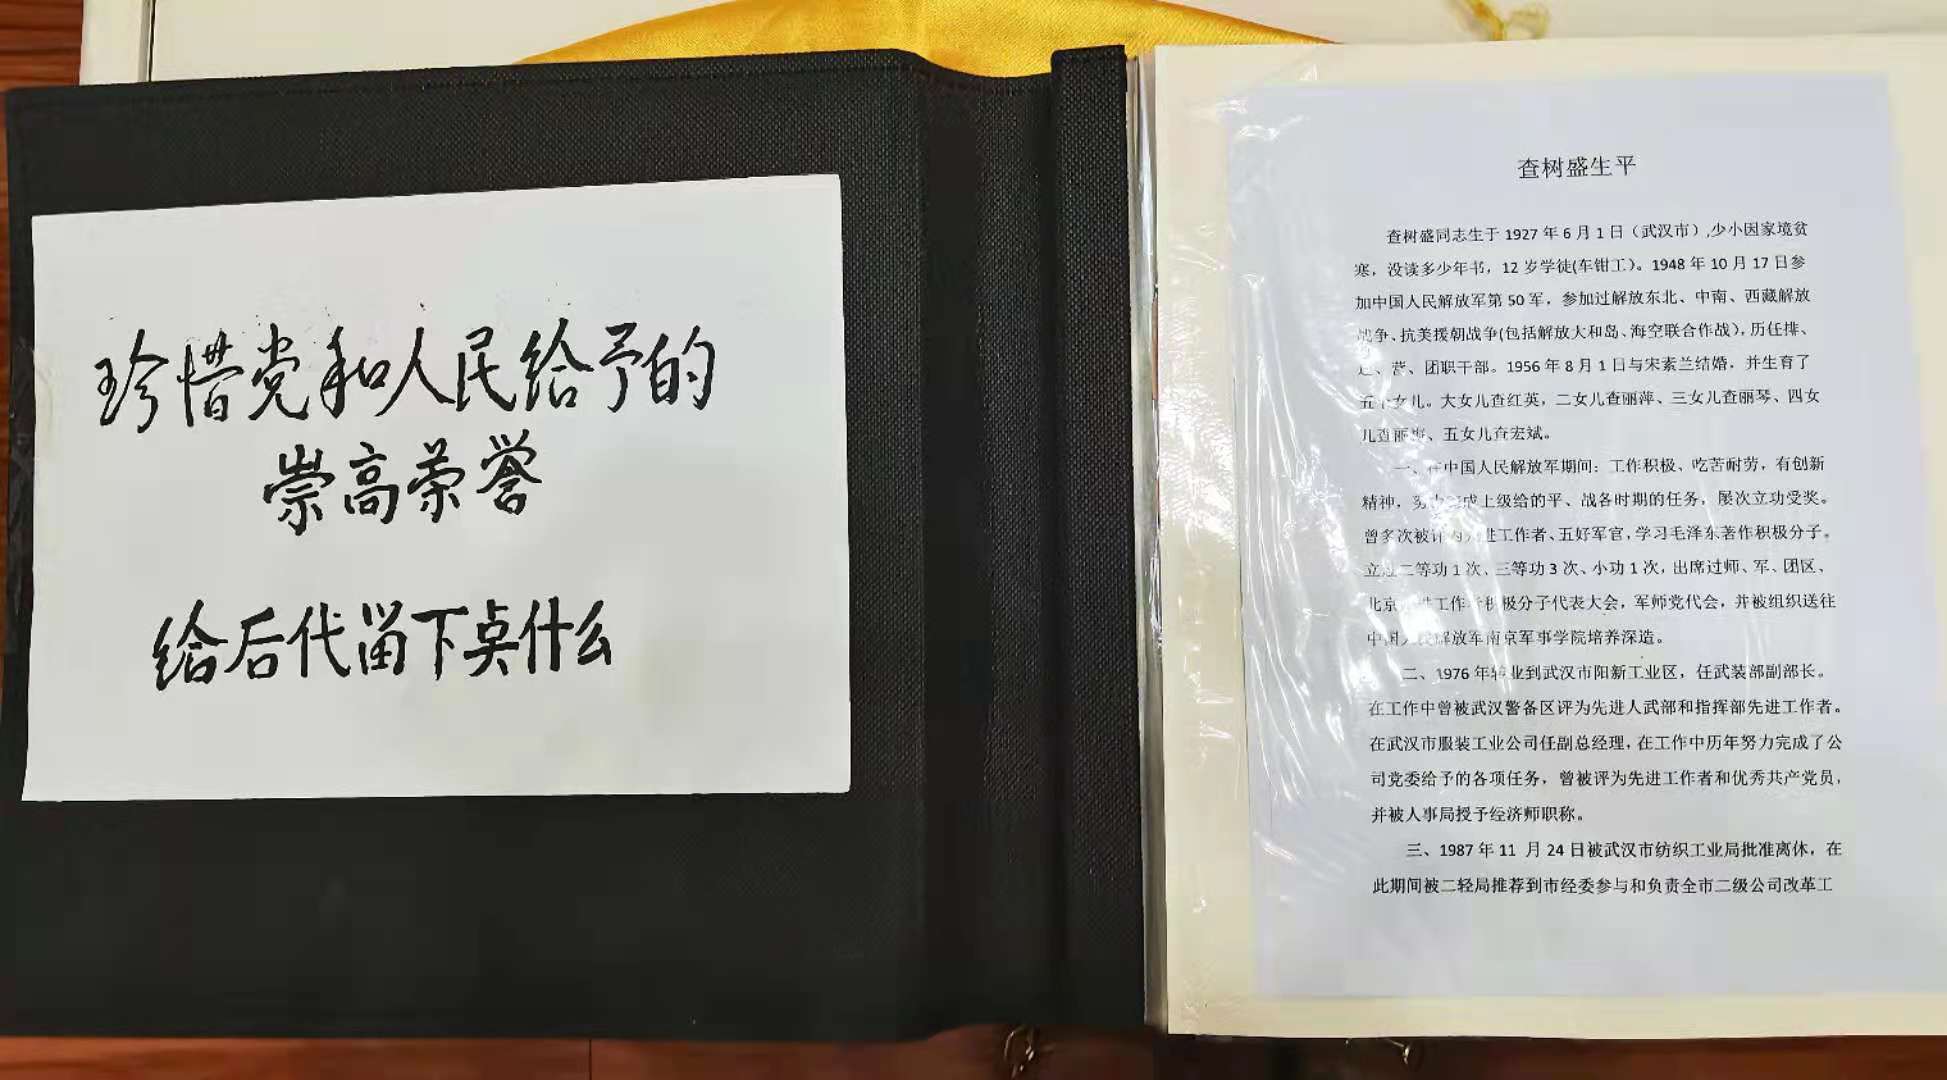 珍惜党和人民给予的
崇高荣誉
给后代留下点什么
查树盛生平
查树盛同志生于1927年6月1日（武汉市）,少小因家境贫
寒，没读多少年书，12岁学徒(车钳工)。1948年10月17日参
加中国人民解放军第50军，参加过解放东北、中南、西藏解放
战争、抗美援朝战争(包括解放大和岛、海空联合作战)，历任排、
、营、团职干部。1956年8月1日与宋素兰结婚，并生育了
五个女儿。大女儿查红英，二女儿查丽萍、三女儿查丽琴、四女
儿查丽梅、五女儿查宏斌。
一、在中国人民解放军期间：工作积极、吃苦耐劳，有创新
精神，努力完成上级给的平、战各时期的任务，屡次立功受奖。
曾多次被评为先进工作者、五好军官，学习毛泽东著作积极分子。
立过二等功1次、三等功3次、小功1次，出席过师、军、团区、
北京先进工作者积极分子代表大会，军师党代会，并被组织送往
中国人民解放军南京军事学院培养深造。
二、1976年转业到武汉市阳新工业区，任武装部副部长。
在工作中曾被武汉警备区评为先进人武部和指挥部先进工作者。
在武汉市服装工业公司任副总经理，在工作中历年努力完成了公
司党委给予的各项任务，曾被评为先进工作者和优秀共产党员，
并被人事局授予经济师职称。
三、1987年11 月24日被武汉市纺织工业局批准离休，在
此期间被二轻局推荐到市经委参与和负责全市二级公司改革工